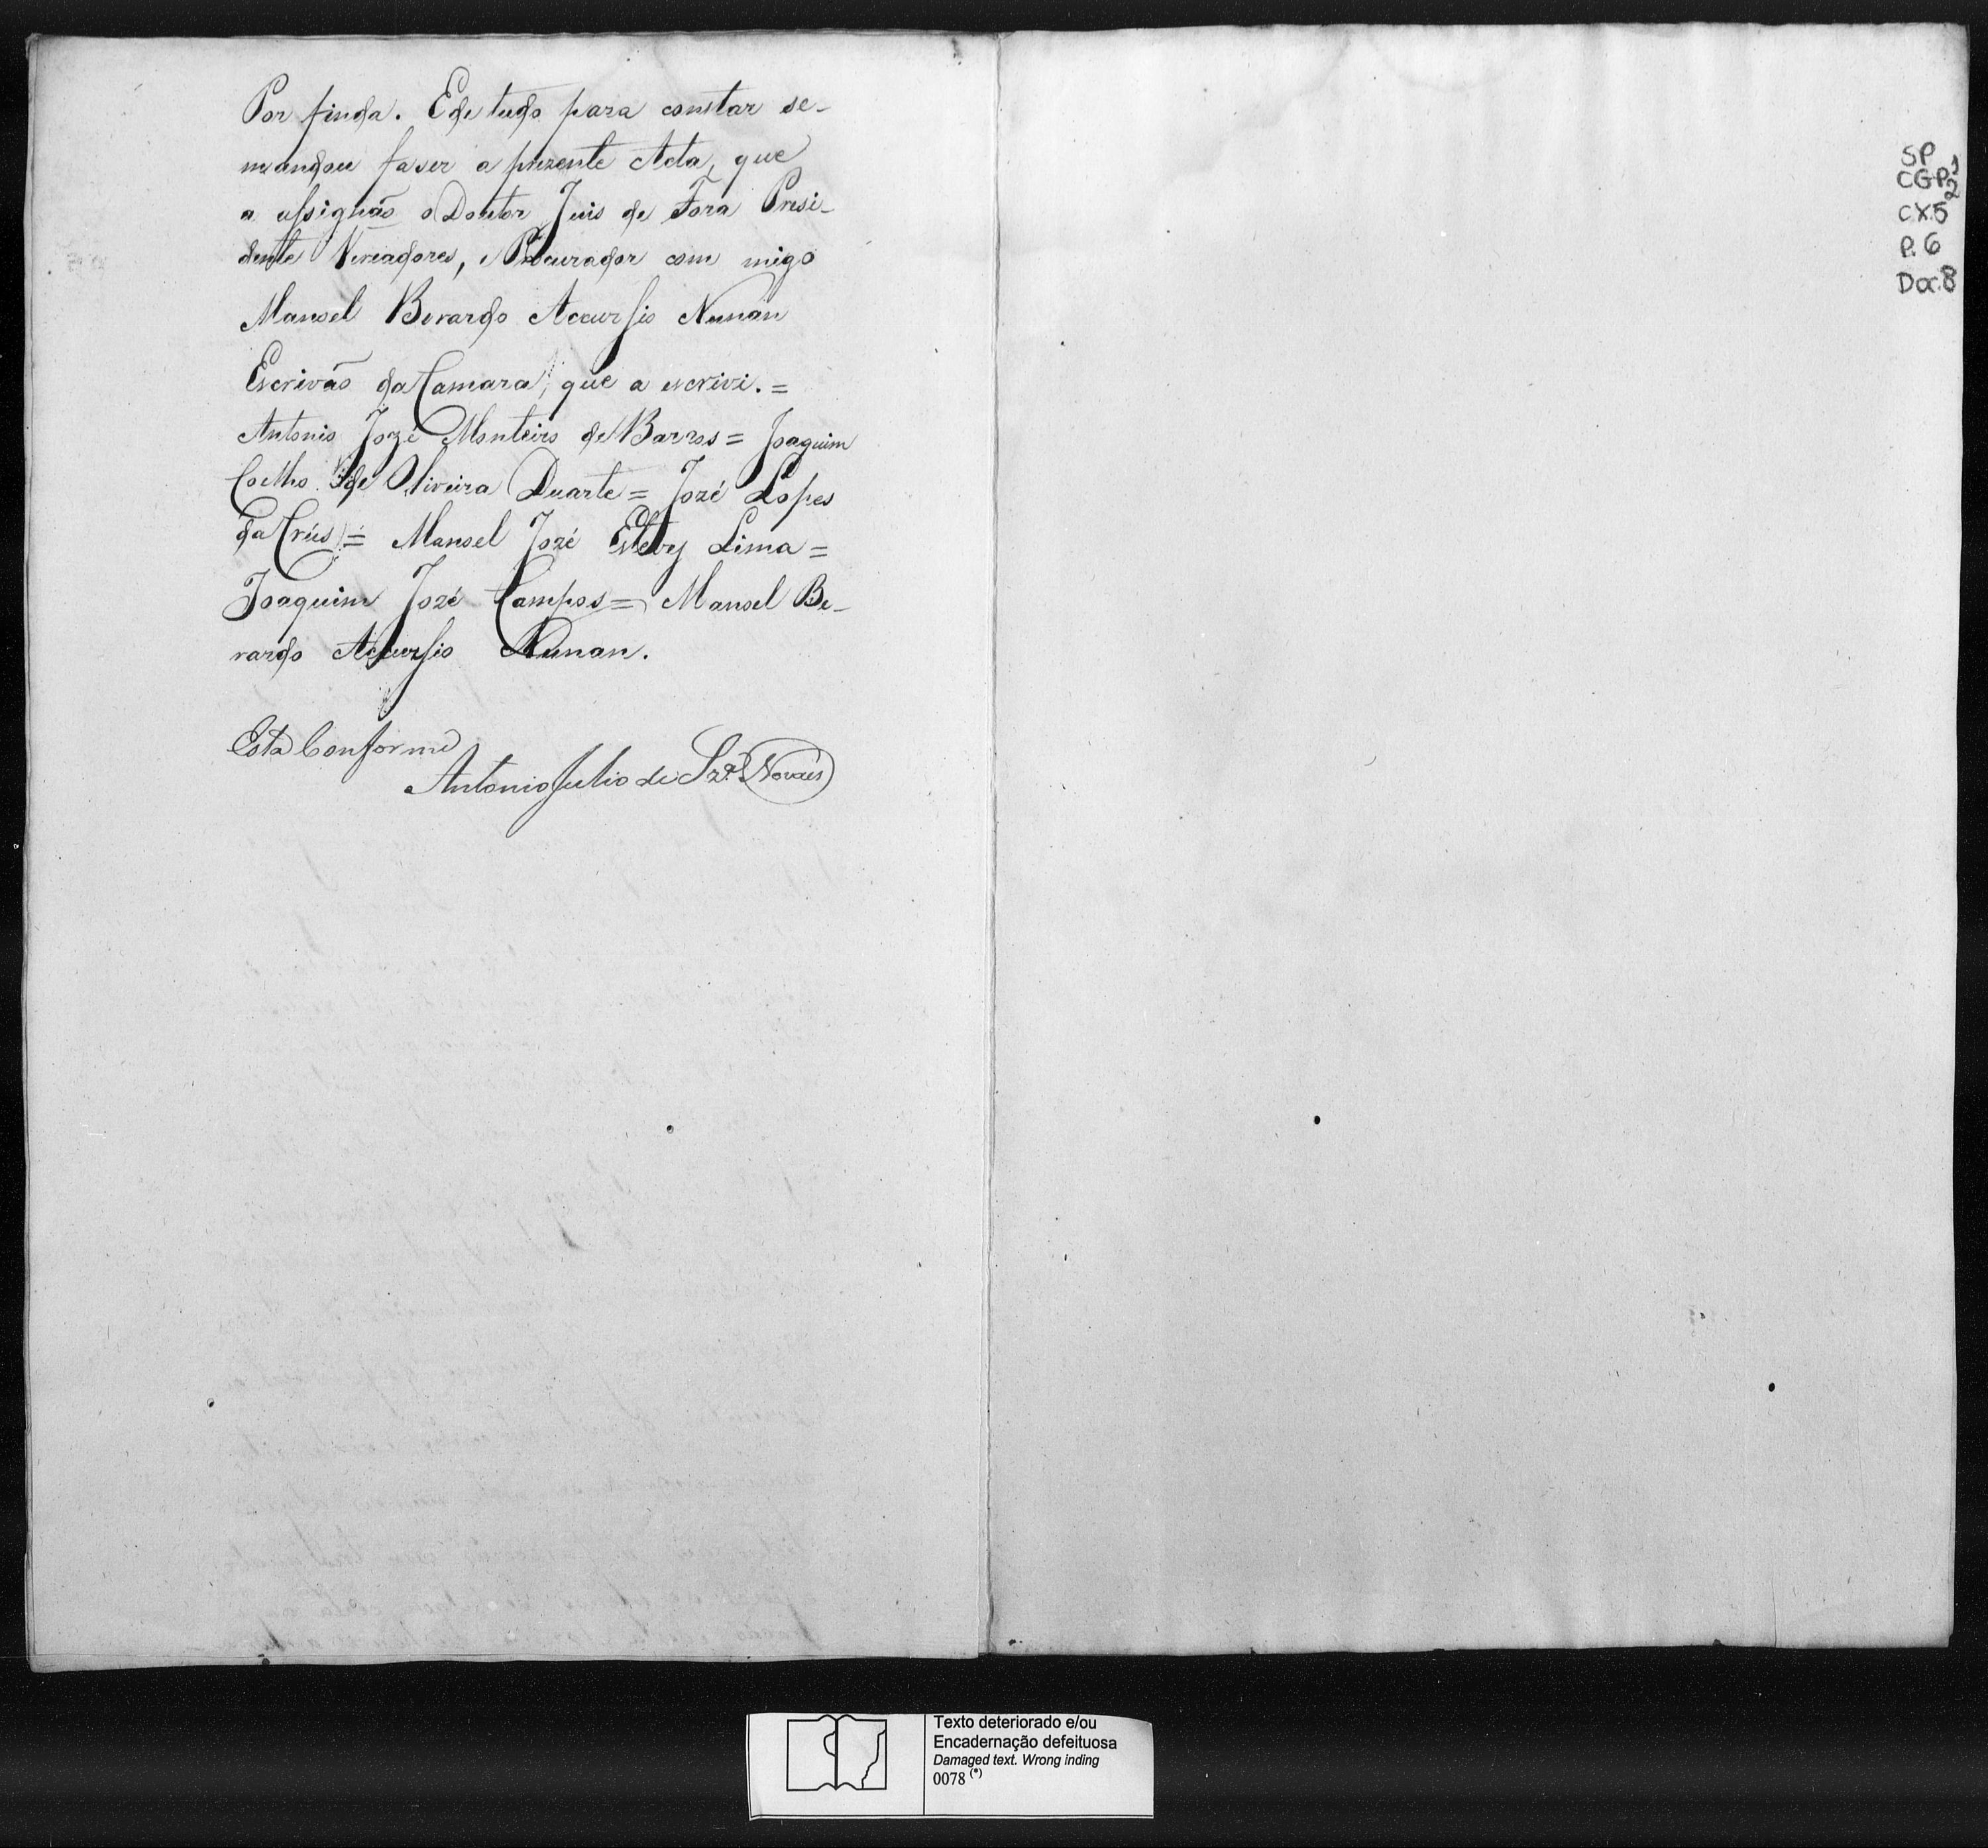 Por finda. E de tudo para constar se-
mandou faser a prezente Acta, que
a assignão o Doutor Juis de Fora Presi-
dente Vereadores, e Procurador com migo
Manoel Berardo Accursio Nunan
Escrivão da Camara, que a escrivi. =
Antonio Jozé Monteiro de Barros = Joaquim
Coelho de Oliveira Duarte = Jozé Lopes
da Crús = Manoel Jozé Lima =
Joaquim Jozé Campos = Manoel Be-
rardo Accursio Nunan.
Está Conforme
Antonio Julio de Sz.ª Novaes
SP
CGP 1
2
CX.5
P. 6
Doc.8
Texto deteriorado e/ou
Encadernação defeituosa
Damaged text. Wrong inding
0078 (*)